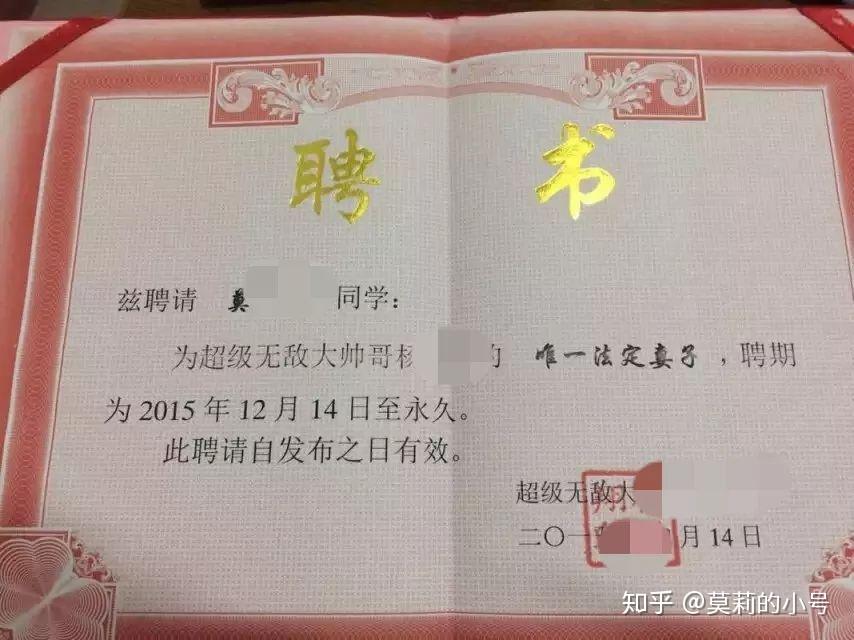 聘 书
兹聘请 莫 同学：
为超级无敌大帅哥杨 的 唯一法定妻子，聘期
为 2015 年 12 月 14 日至永久。
此聘请自发布之日有效。
超级无敌大
二〇一五 月 14 日
知乎 @莫莉的小号